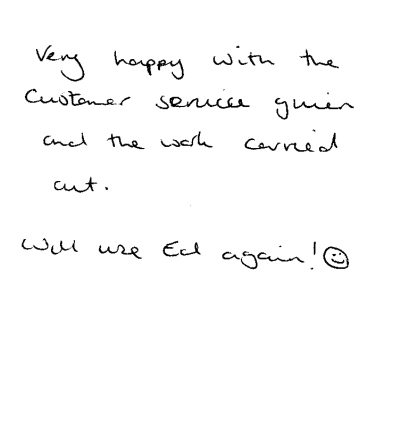 Very happy with the
Customer service given
and the work carried
out.
Will use Ed again! ☺